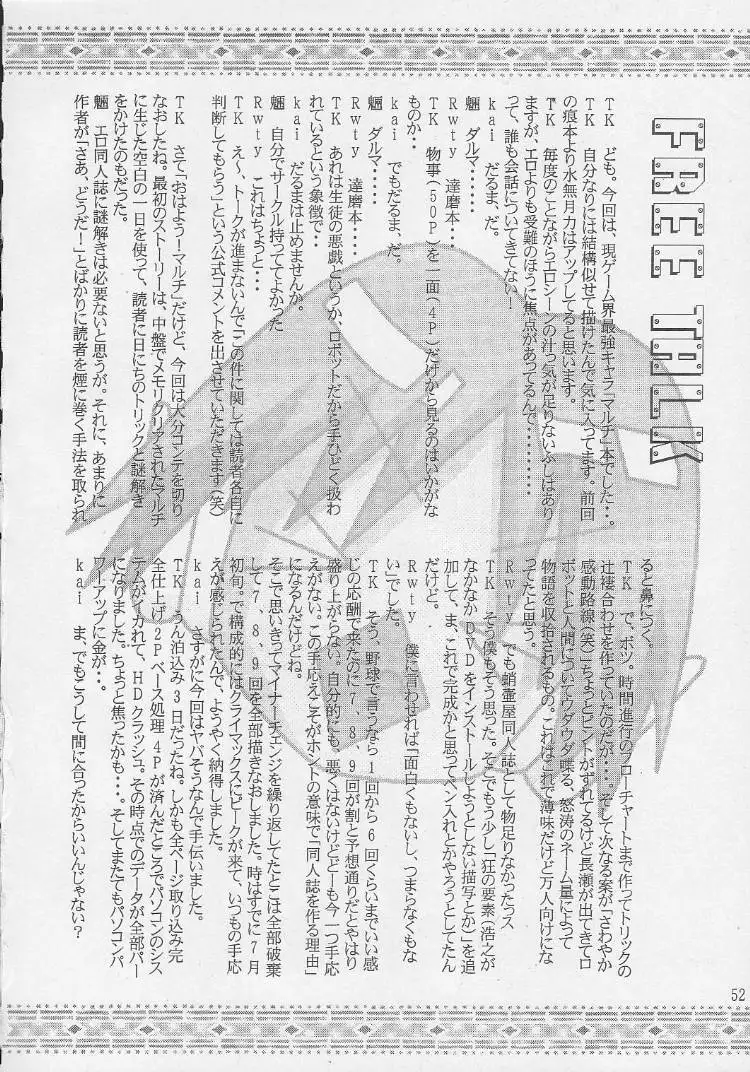 FREE TALK
TK　ども。今回は、現ゲーム界最強キャラ「マルチ」本でした・・。
TK　自分なりには結構似せて描けたんで気に入ってます。前回
の痕本より水無月力はアップしてると思います。
TK　毎度のことながらエロシーンの汁っ気が足りないふしはあり
ますが、エロよりも受難のほうに焦点があつてるんで・・・・・・・・
って、誰も会話についてきてない！
kai　だるま、だ。
魎　ダルマ・・・・
Rwty　達磨本・・・
TK　物事（50P）を一面（4P）だけから見るのはいかがな
ものか・・
kai　でもだるま、だ。
魎　ダルマ・・・・
Rwty　達磨本・・・
TK　あれは生徒の悪戯というか、ロボットだから手ひどく扱わ
れているという象徴で・・
kai　だるまは止めませんか。
魎　自分でサークル持っててよかった
Rwty　これはちょっと・・・
TK　え～、トークが進まないんで「この件に関しては読者各自に
判断してもらう」という公式コメントを出させていただきます（笑）
TK　さて「おはよう！マルチ」だけど、今回は大分コンテを切り
なおしたね。最初のストーリーは、中盤でメモリクリアされたマルチ
に生じた空白の一日を使って、読者に日にちのトリックと謎解き
をかけたのもだった。
魎　エロ同人誌に謎解きは必要ないと思うが。それに、あまりに
作者が「さあ、どうだ！」とばかりに読者を煙に巻く手法を取られ
ると鼻につく。
TK　で、ボツ。時間進行のフローチャートまで作ってトリックの
辻褄合わせを作っていたのだが・・・・。そして次なる案が「さわやか
感動路線（笑）」ちょっとピントがずれてるけど長瀬が出てきてロ
ボットと人間についてウダウダ喋る、怒涛のネーム量によって
物語を収拾されるもの。これはこれで薄味だけど万人向けにな
ってたと思う。
Rwty　でも蛸壷屋同人誌として物足りなかったっス
TK　そう僕もそう思った。そこでもう少し「狂の要素（浩之が
なかなかDVDをインストールしようとしない描写とか）」を追
加して、ま、これで完成かと思ってペン入れとかやろうとしてたん
だけど。
Rwty　僕に言わせれば「面白くもないし、つまらなくもな
い」でした。
TK　そう、野球で言うなら1回から6回くらいまでいい感
じの応酬で来たのに7、8、9回が割と予想通りだとやはり
盛り上がらない。自分的にも。悪くはないけどどーも今一つ手応
えがない。この手応えこそがホントの意味で「同人誌を作る理由」
になるんだけどね。
そこで思いきってマイナーチェンジを繰り返してたとこは全部破棄
して7、8、9回を全部描きなおしました。時はすでに7月
初旬。で構成的にはクライマックスにピークが来て、いつもの手応
えが感じられたんで、ようやく納得しました。
kai　さすがに今回はヤバそうなんで手伝いました。
TK　うん泊込み3日だったね。しかも全ページ取り込み完
全仕上げ2Pベース処理4Pが済んだところでパソコンのシス
テムがイカれて、HDクラッシュ。その時点でのデータが全部パー
になりました。ちょっと焦ったかも・・・。そしてまたてもパソコンパ
ワーアップに金が・・。
kai　ま、でもこうして間に合ったからいいんじゃない？
52